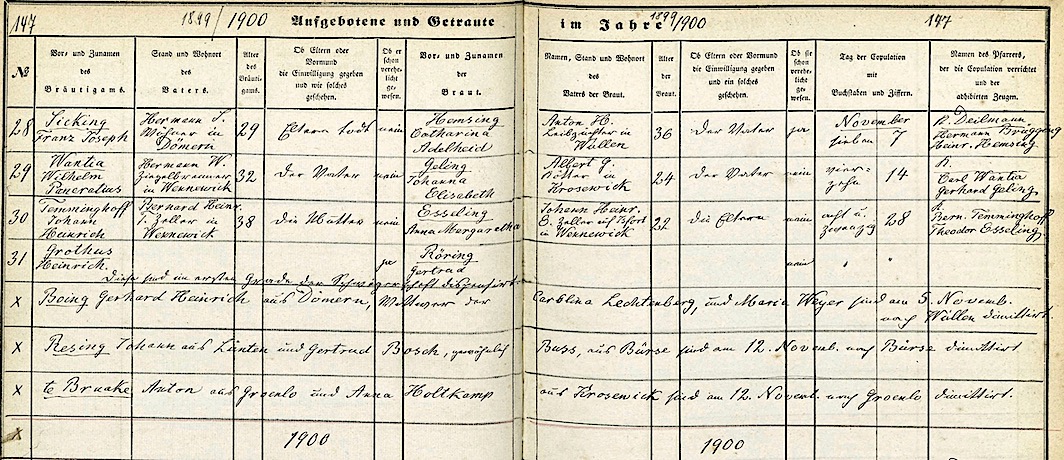 147 1899/1900 Aufgebotene und Getraute im Jahre 1899/1900 147
№
Vor- und Zunamen des Bräutigams.
Stand und Wohnort des Vaters.
Alter des Bräutigams.
Ob Eltern oder Vormund die Einwilligung gegeben und wie solches geschehen.
Ob er schon verehelicht gewesen.
Vor- und Zunamen der Braut.
Namen, Stand und Wohnort des Vaters der Braut.
Alter der Braut.
Ob Eltern oder Vormund die Einwilligung gegeben und ein solches geschehen.
Ob sie schon verehelicht gewesen.
Tag der Copulation mit Buchstaben und Ziffern.
Namen des Pfarrers, der die Copulation verrichtet und der adhibirten Zeugen.
28
Sicking
Franz Joseph
Hermann S.
Wöhner in
Dömern
29
Eltern todt
nein
Hemsing
Catharina
Adelheid
Anton H.
Leibzüchter in
Wüllen
36
Der Vater
ja
November
sieben 7
Deilmann
Hermann Brüggeng
Heinr. Hemsing
29
Wantia
Wilhelm
Pancratius
Hermann W.
Ziegelbrenner
in Wennewick
32
Der Vater
nein
Geling
Johanna
Elisabeth
Albert G.
Kötter in
Krosewick
24
Der Vater
nein
vier-
zehn 14
Carl Wantia
Gerhard Geling
30
Temminghoff
Johann
Heinrich
Bernhard Heinr.
T. Zeller in
Wennewick
38
Die Mutter
nein
Esseling
Anna Margaretha
Johann Heinr.
E. Zeller auf
in Wennewick
22
Die Eltern
nein
acht u.
zwanzig 28
Bern. Temminghoff
Theodor Esseling
31
Grothus
Heinrich.
ja
Röring
Gertrud
nein
Diese sind im ersten Grade der Schwägerschaft dispensirt
X Böing Gerhard Heinrich aus Dömern, Wittwer der Carolina Lechtenberg, und Maria Weyer sind am 5. Novemb.
nach Wüllen dimittirt.
X Resing Johann aus Lünten und Gertrud Bosch, gewöhnlich Buss, aus Bürse sind am 12. Novemb. nach Bürse dimittirt
X te Braake Anton aus Groenlo und Anna Holtkamp aus Krosewick sind am 12. Novemb. nach Groenlo dimittirt.
X 1900 1900